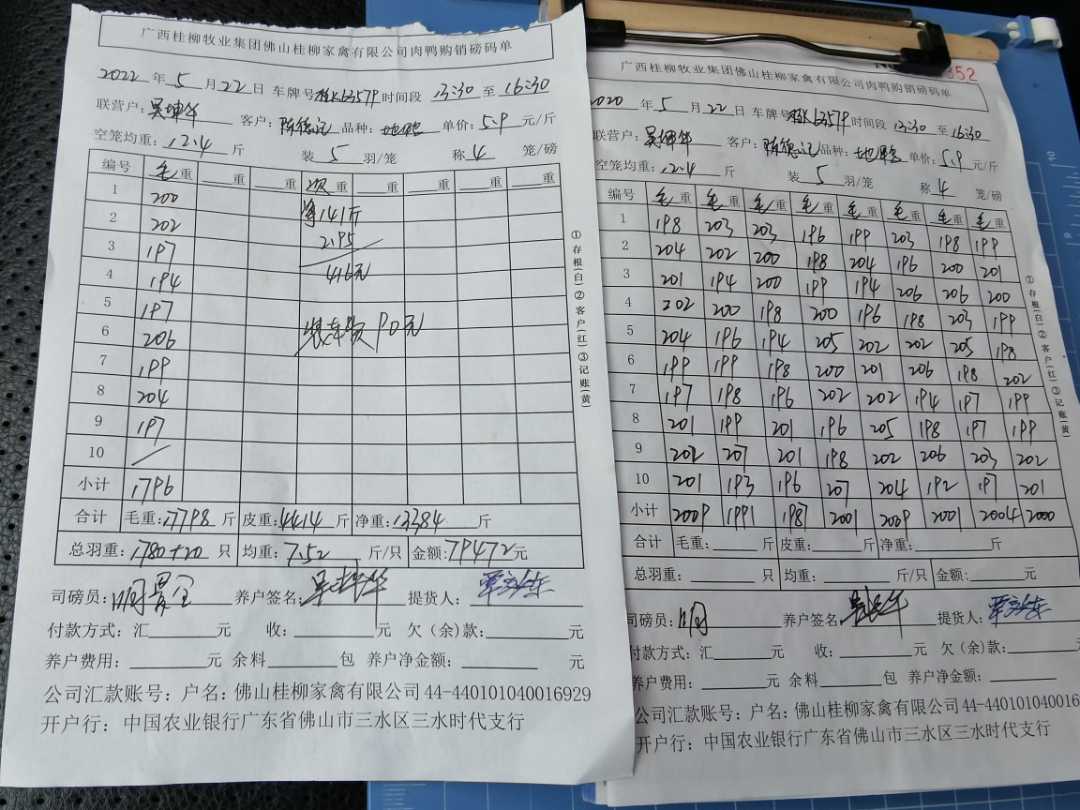 广西桂柳牧业集团佛山桂柳家禽有限公司肉鸭购销磅码单
2022年5月22日 车牌号 K6357P 时间段 13:30 至 16:30
联营户:吴坤华 客户:陈德记 品种: 单价:5.9元/斤
空笼均重:12.4斤 装5羽/笼 称4笼/磅
编号 毛重 重 重 次重 重 重 重 重
1 200 净141斤
2 202 2.95
3 197 416元
4 194
5 197
6 206 装车费90元
7 199
8 204
9 197
10 /
小计 1796
合计 毛重:17798斤 皮重:4414斤 净重:13384斤
总羽重:1780+20只 均重:7.52斤/只 金额:79472元
司磅员: 养户签名: 提货人:
付款方式:汇 元 收: 元 欠(余)款: 元
养户费用: 元 余料 包 养户净金额: 元
公司汇款账号:户名:佛山桂柳家禽有限公司 44-440101040016929
开户行:中国农业银行广东省佛山市三水区三水时代支行
①存根(白)②客户(红)③记账(黄)
352
广西桂柳牧业集团佛山桂柳家禽有限公司肉鸭购销磅码单
2020年5月22日 车牌号 K6357P 时间段 13:30至16:30
联营户:吴坤华 客户:陈德记 品种: 单价:5.9元/斤
空笼均重:12.4斤 装5羽/笼 称4笼/磅
编号 毛重 毛重 毛重 毛重 毛重 毛重 毛重 毛重
1 198 203 203 196 199 203 198 199
2 204 202 200 198 204 196 200 201
3 201 194 200 199 194 206 206 200
4 202 200 198 200 196 198 203 199
5 204 196 194 205 202 202 205 198
6 199 199 198 200 201 206 198 202
7 197 198 196 202 202 194 197 199
8 201 199 201 196 205 198 197 199
9 202 207 201 198 202 206 203 202
10 201 193 196 207 204 192 197 201
小计 2009 1991 1987 2001 2009 2001 2004 2000
合计 毛重: 斤 皮重: 斤 净重: 斤
总羽重: 只 均重: 斤/只 金额: 元
司磅员: 养户签名: 提货人:
付款方式:汇 元 收: 元 欠(余)款:
养户费用: 元 余料 包 养户净金额:
公司汇款账号:户名:佛山桂柳家禽有限公司 44-440101040016
开户行:中国农业银行广东省佛山市三水区三水时代支行
①存根(白)②客户(红)③记账(黄)